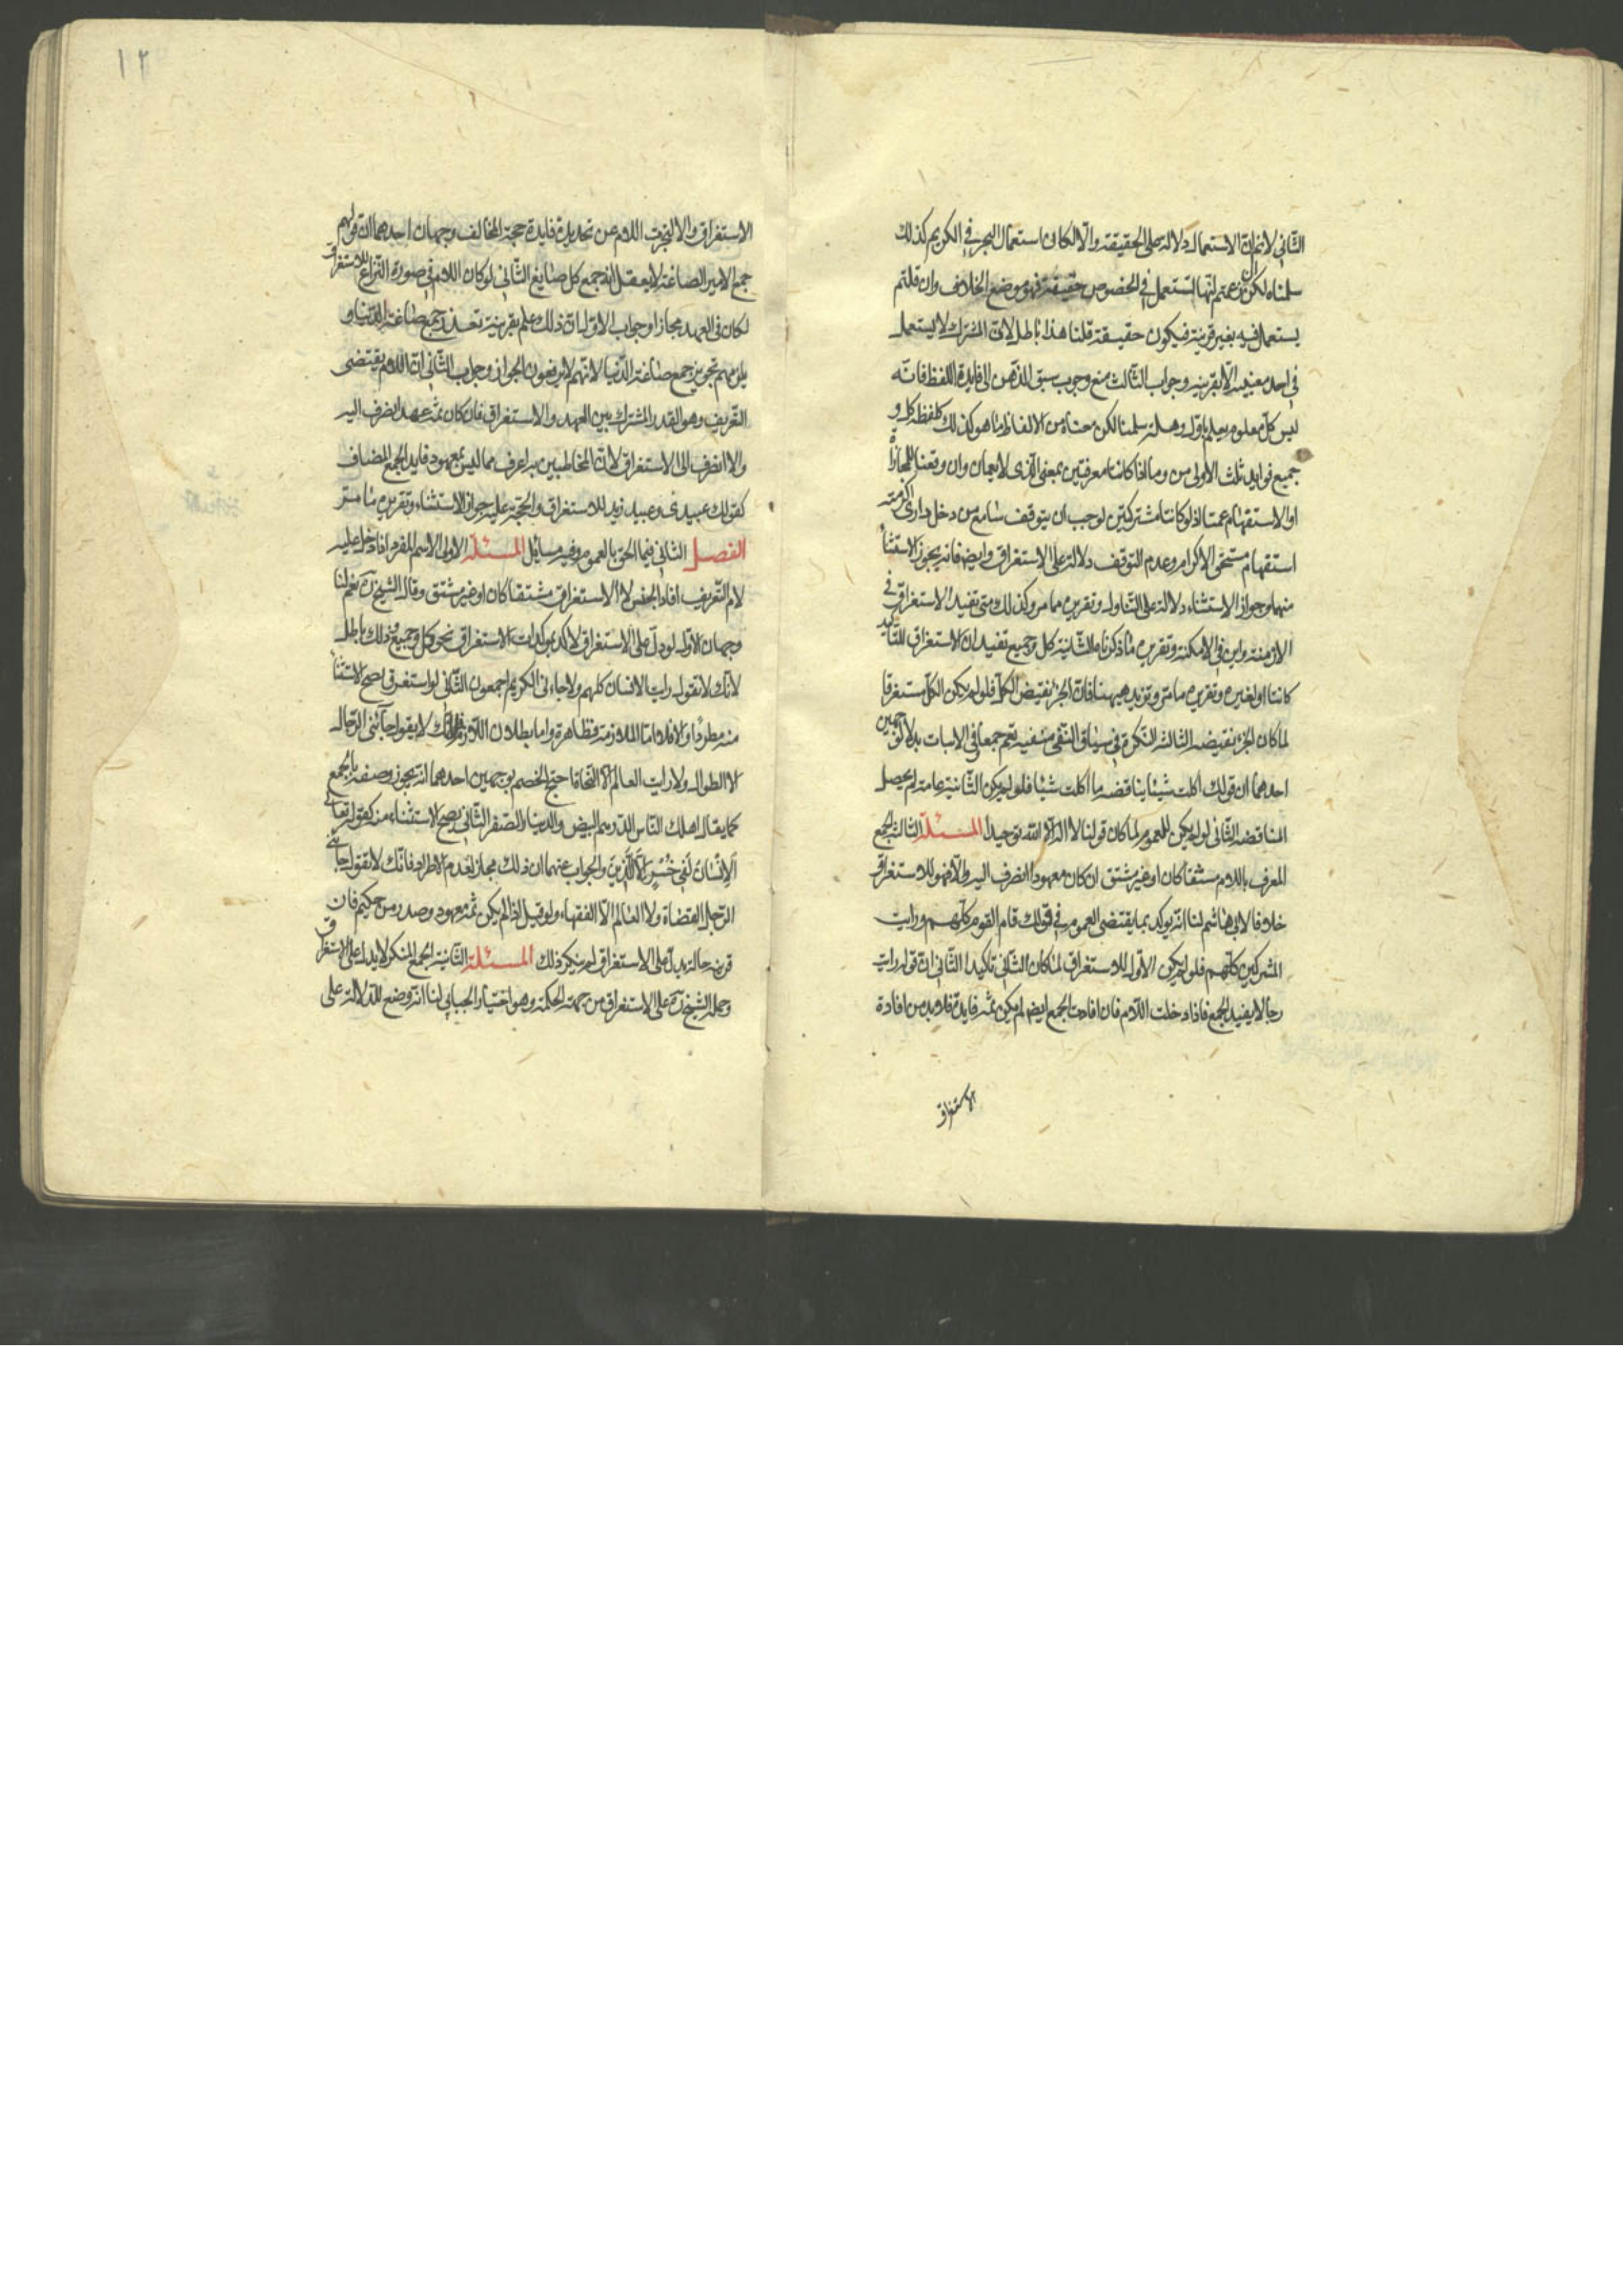 الثاني لا نم ان الاستعمال دلالة على الحقيقة والا لكان استعمال البحر في الكريم كذلك
سلمناه لكن ان زعمتم انها تستعمل في الخصوص حقيقة فهو موضع الخلاف وان قلتم
يستعمل فيه بغير قرينة فيكون حقيقة قلنا هذا باطل لان المشترك لا يستعمل
في احد معنييه الا بقرينة وجواب الثالث منع وجوب سبق الذهن الى فايدة اللفظ فانّه
ليس كل معلوم يعلم باوّل وهلة سلمنا لكن معناه من الالفاظ ما هو كذلك كلفظة كل و
جميع فوايد ثلث الاولى من وما اذا كانتا معرفتين بمعنى الذي لا يعمان وان وقعتا للمجازاة
او الاستفهام عمتا اذ لو كانتا مشتركتين لوجب ان يتوقف سامع من دخل داري اكرمته
استفهام مستحق الاكرام وعدم التوقف دلالة على الاستغراق وايضا فانه يجوز الاستثناء
منهما وجواز الاستثناء دلالة على التناول وتقريره مما مر وكذلك متى تفيد الاستغراق في
الازمنة واين في الامكنة وتقريره ما ذكرناه الثانية كل وجميع تفيدان الاستغراق للتأكيد
كانتا او لغيره وتقريره ما مر ونزيد هيهنا فان الجزء نقيض الكل فلو لم يكن الكل مستغرقا
لما كان الجزء نقيضه الثالثة النكرة في سياق النفي منفية تعم جمعا وفي الاثبات بدلا لوجهين
احدهما ان قولك اكلت شيئا يناقضه ما اكلت شيئا فلو لم يكن الثانية عامة لم يحصل
المناقضة الثاني لو لم يكن للعموم لما كان قولنا لا اله الا الله توحيدا المسئلة الثالثة الجمع
المعرف باللام مشتقا كان او غير مشتق ان كان معهود انصرف اليه والا فهو للاستغراق
خلافا لابي هاشم لنا انه يوكد بما يقتضي العموم في قولك قام القوم كلهم ورايت
المشركين كلهم فلو لم يكن الاول للاستغراق لما كان الثاني تأكيدا الثاني ان قوله رايت
رجالا يفيد الجمع فاذا دخلت اللام فان افادت الجمع ايضا لم يكن ثمه فايدة فلا بد من افادة
الاستغراق
١٢
الاستغراق والا لتجردت اللام عن تجديد فايدة حجة المخالف وجهان احدهما ان قولهم
جمع الامير الصاغة لا يعقل انه جمع كل صايغ الثاني لو كان اللام في صورة النزاع للاستغراق
لكان في العهد مجازا وجواب الاول ان ذلك علم بقرينة تعذر جمع صاغة الدنيا و
يلزمهم تجويز جمع صاغة الدنيا لانهم لا يرفعون الجواز وجواب الثاني ان اللام يقتضي
التعريف وهو القدر المشترك بين العهد والاستغراق فان كان ثمه عهد انصرف اليه
والا انصرف الى الاستغراق لان المخاطبين به اعرف مما ليس بمعهود فايدة الجمع المضاف
كقولك عبيدي وعبيد زيد للاستغراق والحجة عليه جواز الاستثناء وتقريره ما مر
الفصل الثاني فيما الحق بالعموم وفيه مسائل المسئلة الاولى الاسم المفرد اذا دخل عليه
لام التعريف افاد الجنس لا الاستغراق مشتقا كان او غير مشتق وقال الشيخ ره يعم لنا
وجهان الاول لو دل على الاستغراق لاكد بموكدات الاستغراق نحو كل وجميع وذلك باطل
لانك لا تقول رايت الانسان كلهم ولا جاءني الكريم اجمعون الثاني لو استغرق لصح الاستثناء
منه مطردا والا فلا اما الملازمة فظاهرة واما بطلان اللازم فلانك لا تقول جاءني الرجال
الا الطوال ولا رايت العالم الا النحاة احتج الخصم بوجهين احدهما انه يجوز وصفه بالجمع
كما يقال اهلك الناس الدرهم البيض والدينار الصفر الثاني يصح الاستثناء منه كقوله تعالى
اَلْاِنْسَانَ لَفِي خُسْرٍ اِلَّا الَّذِينَ والجواب عنهما ان ذلك مجاز لعدم الاطراد فانك لا تقول جاءني
الرجل القضاة ولا العالم الا الفقهاء ولو قيل اذا لم يكن ثمه معهود وصدر من حكيم فان
قرينة حاله يدل على الاستغراق لم ينكر ذلك المسئلة الثانية الجمع المنكر لا يدل على الاستغراق
وحمله الشيخ ره على الاستغراق من جهة الحكمة وهو اختيار الجبائي لنا انه وضع للدلالة على